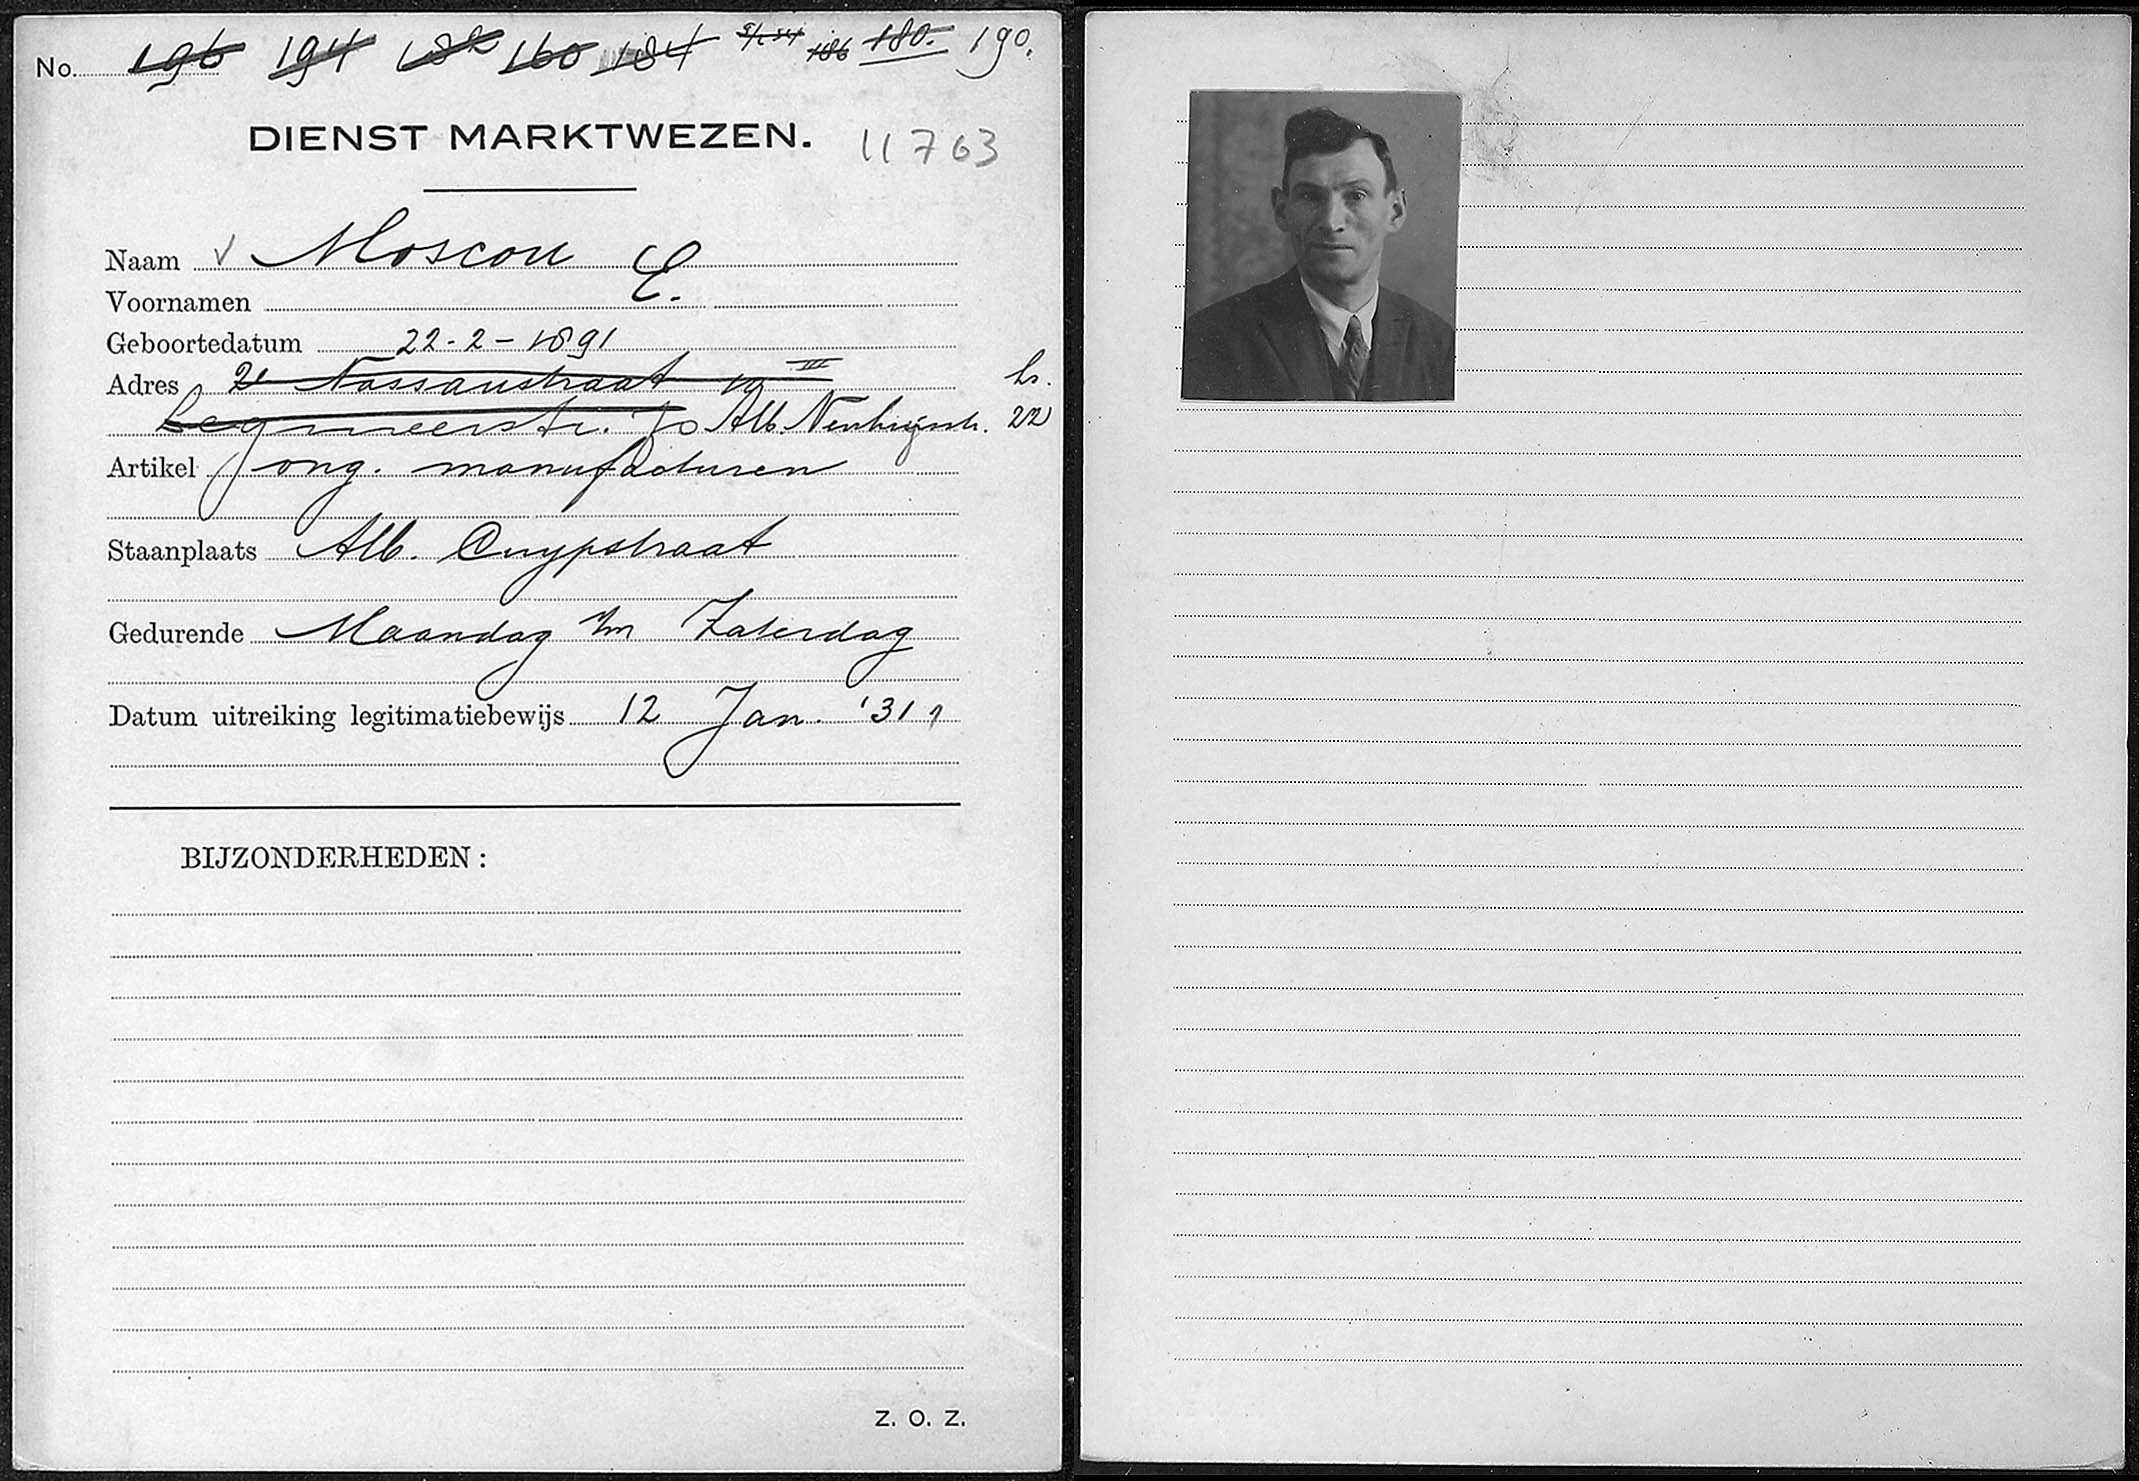 No. 196 194 182 160 184 5/1 34 186 180. 190.
DIENST MARKTWEZEN. 11763
Naam √ Moscou E.
Voornamen
Geboortedatum 22-2-1891
Adres 2e Nassaustraat 19 III hs.
Legmeerstr. 70 Alb. Neuhuijsstr. 22
Artikel ong. manufacturen
Staanplaats Alb. Cuypstraat
Gedurende Maandag t/m Zaterdag
Datum uitreiking legitimatiebewijs 12 Jan. '31
BIJZONDERHEDEN:
Z. O. Z.